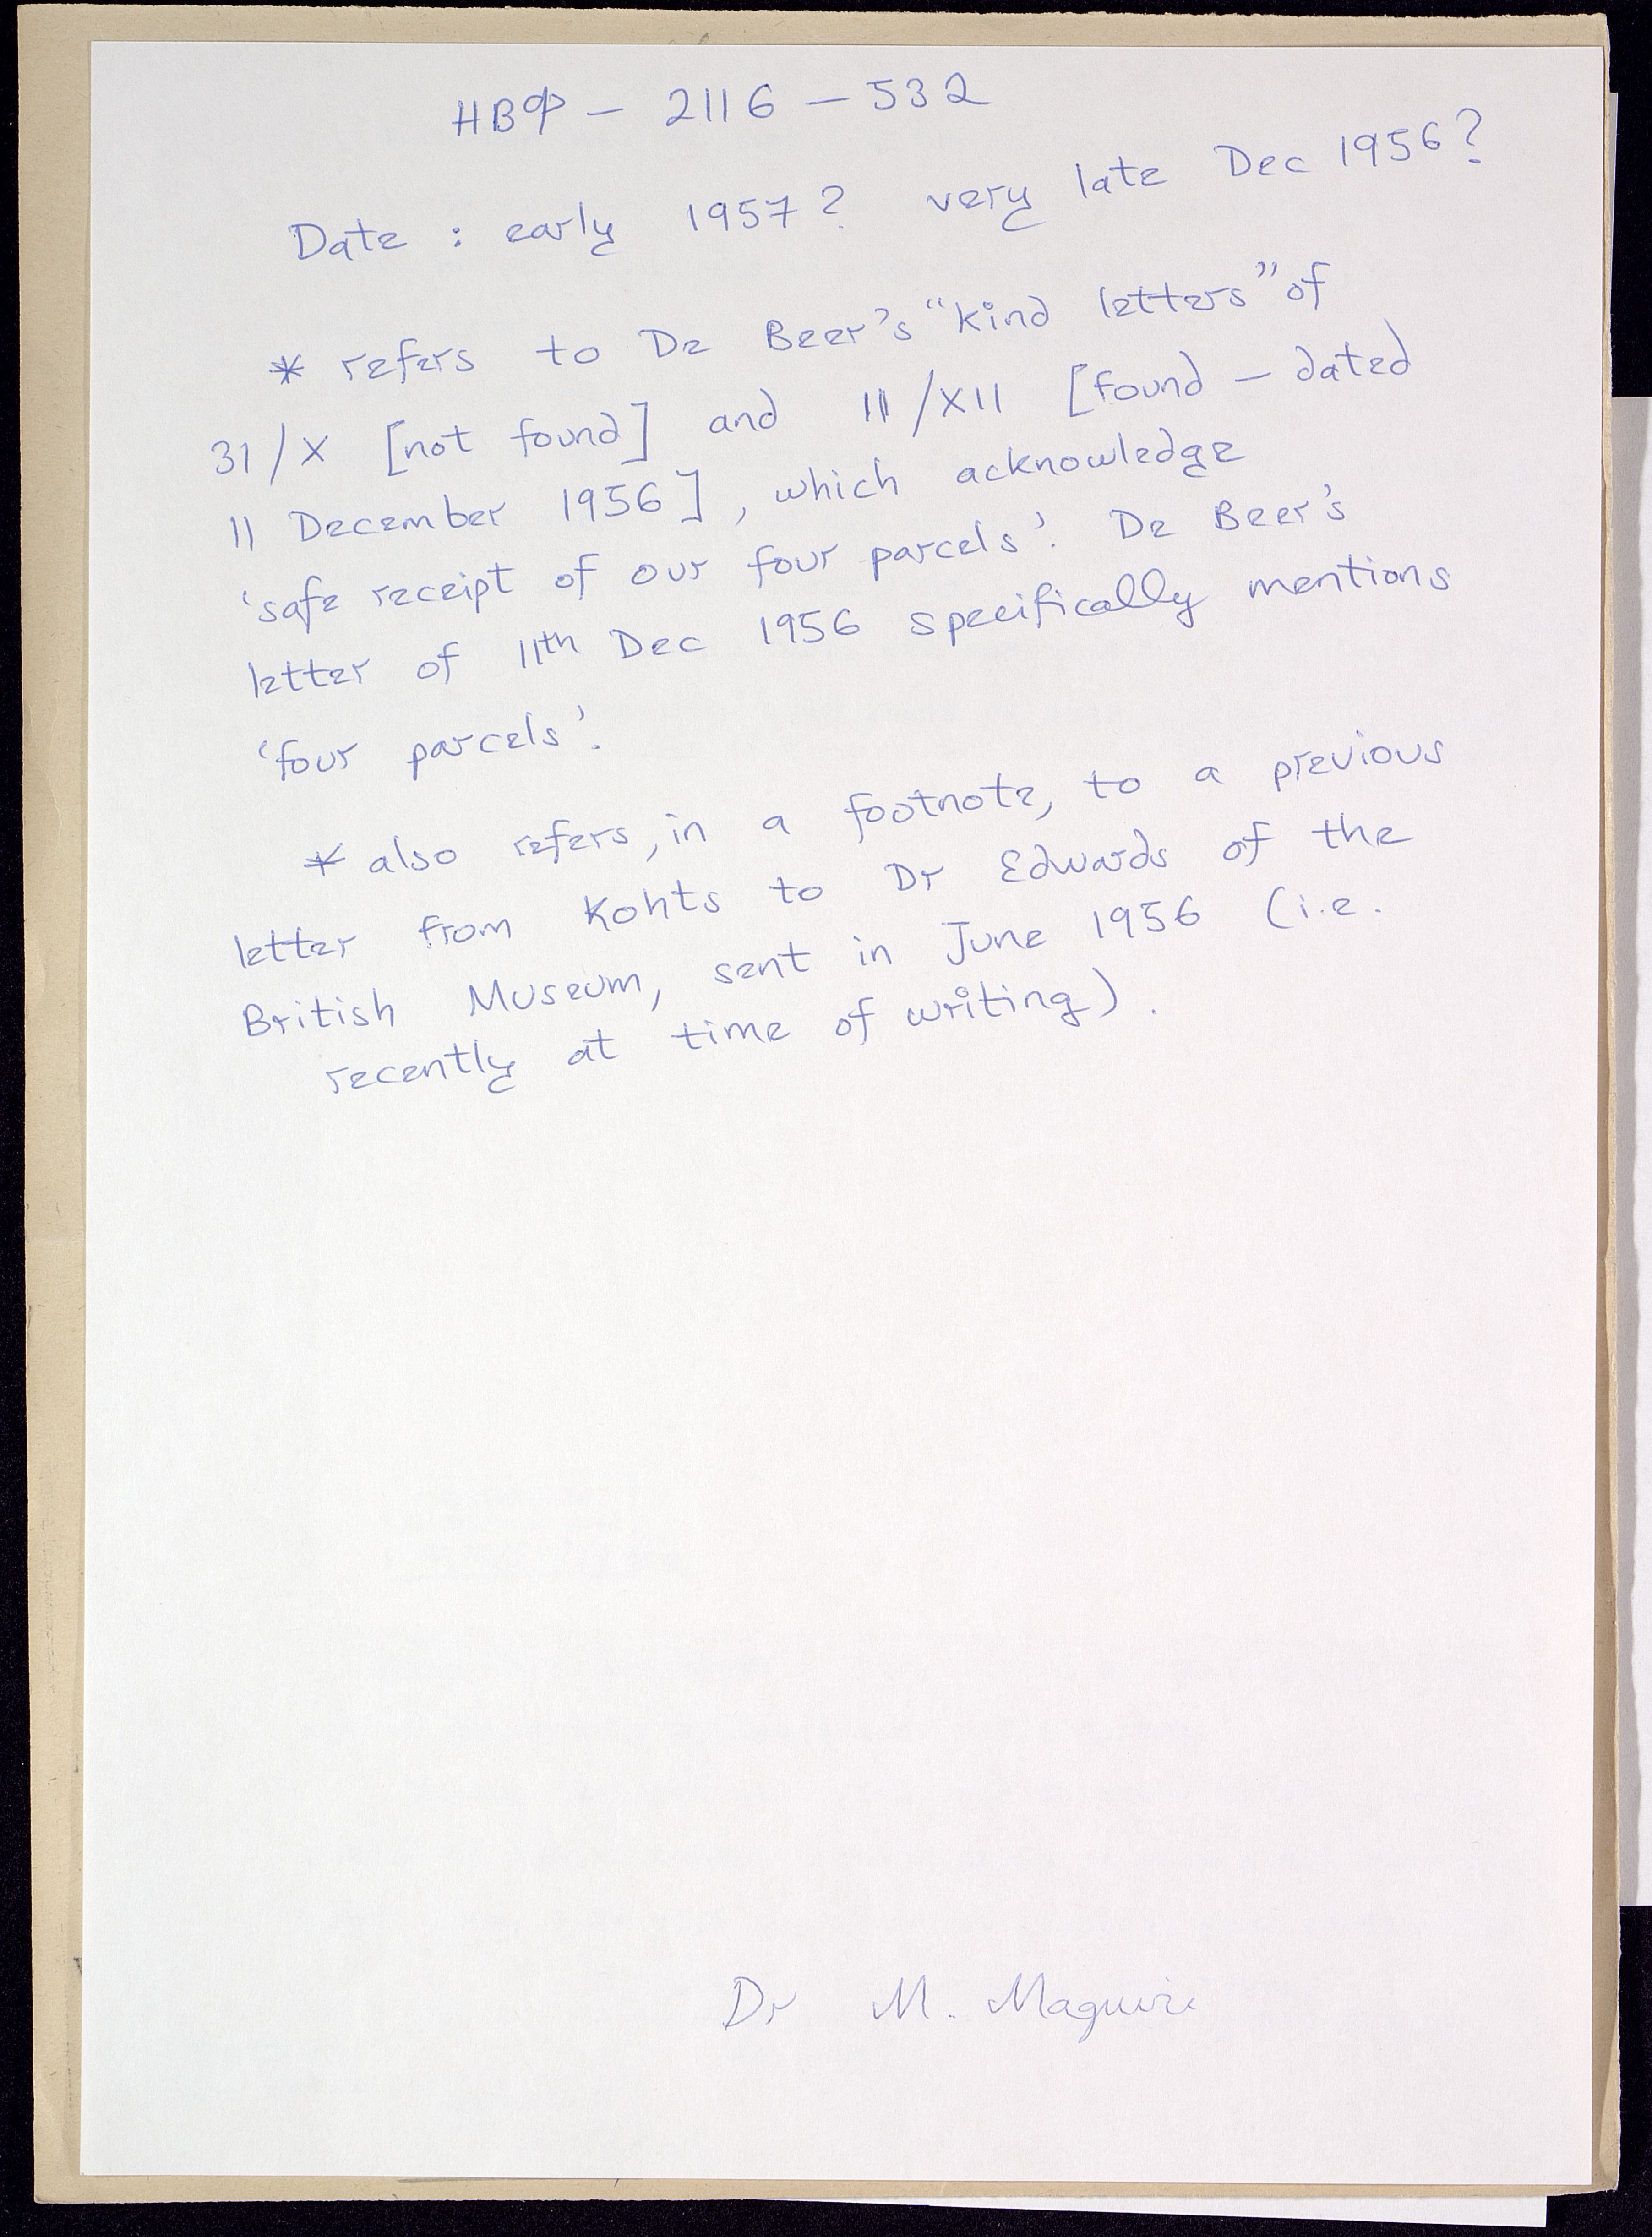 НВФ – 2116 – 532
Date : early 1957? very late Dec 1956?
* refers to De Beer's "kind letters" of
31/X [not found] and 11/XII [found – dated
11 December 1956], which acknowledge
'safe receipt of our four parcels'. De Beer's
letter of 11th Dec 1956 specifically mentions
'four parcels'.
* also refers, in a footnote, to a previous
letter from Kohts to Dr Edwards of the
British Museum, sent in June 1956 (i.e.
recently at time of writing).
Dr M. Maguire